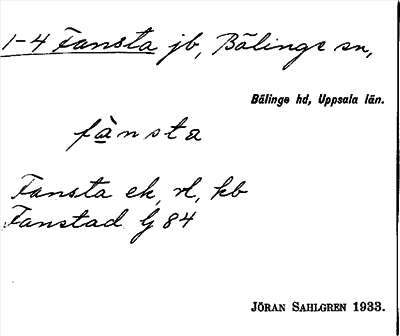 1-4 Fansta jb, Bälinge sn,
Bälinge hd, Uppsala län.
fànsta
Fansta ek, rl, kb
Fanstad G 84
JÖRAN SAHLGREN 1933.